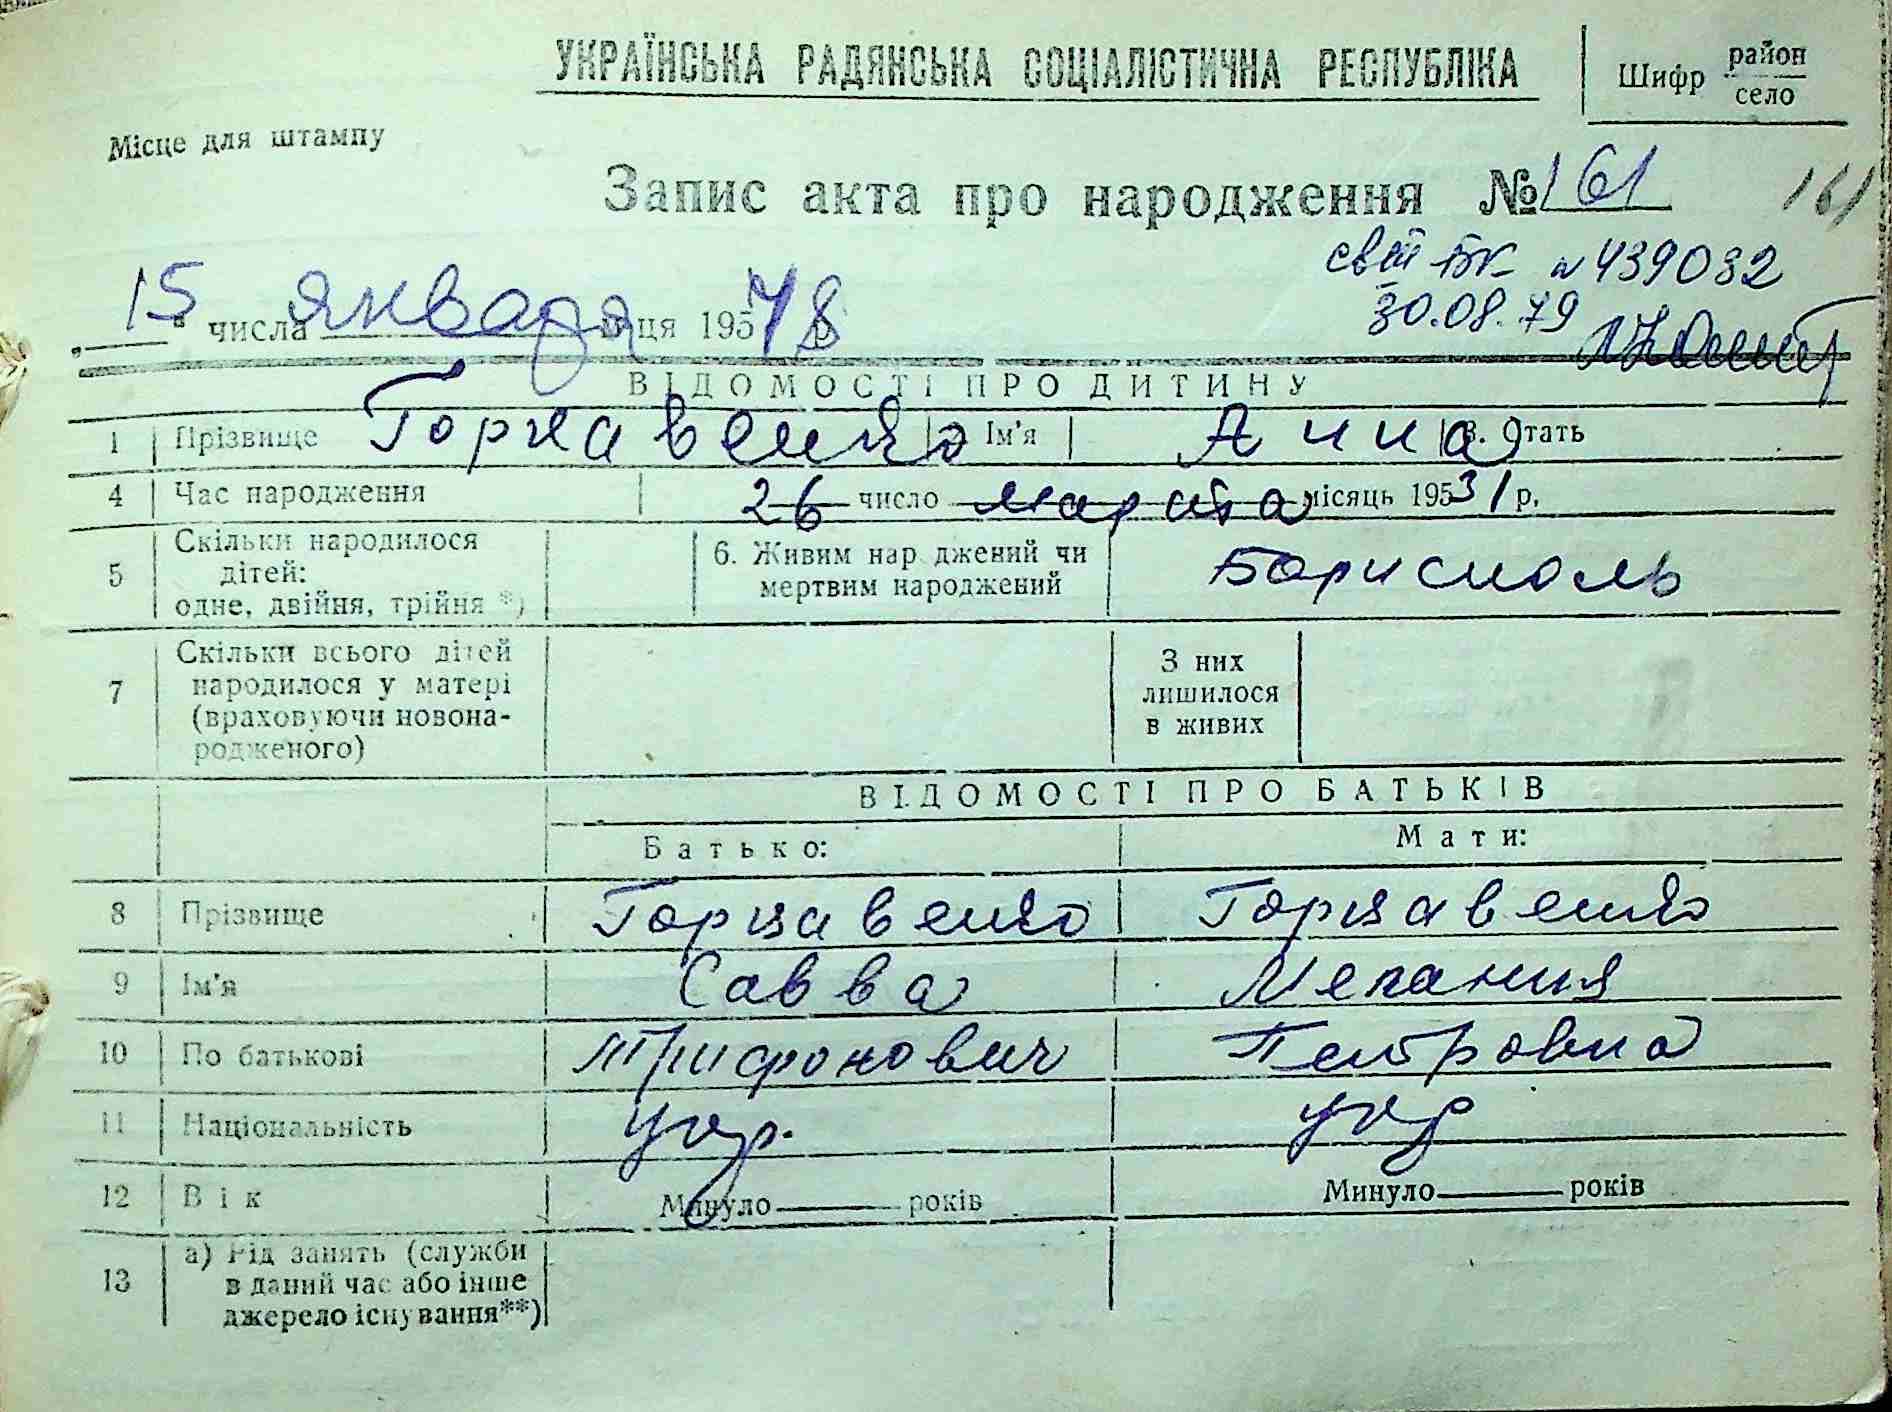 УКРАЇНСЬКА РАДЯНСЬКА СОЦІАЛІСТИЧНА РЕСПУБЛІКА
Шифр район село
Місце для штампу
Запис акта про народження № 161
161
свід № 439032
30.08.79
15 числа января м-ця 1957 78
ВІДОМОСТІ ПРО ДИТИНУ
1 Прізвище Горкавенко 2. Ім'я Анна 3. Стать
4 Час народження 26 число марта місяць 195 31 р.
5 Скільки народилося дітей: одне, двійня, трійня *) 6. Живим народжений чи мертвим народжений Борисполь
7 Скільки всього дітей народилося у матері (враховуючи новонародженого) З них лишилося в живих
ВІДОМОСТІ ПРО БАТЬКІВ
Батько: Мати:
8 Прізвище Горкавенко Горкавенко
9 Ім'я Савва Мелания
10 По батькові Трифонович Петровна
11 Національність укр. укр
12 Вік Минуло років Минуло років
13 а) Рід занять (служби в даний час або інше джерело існування**)